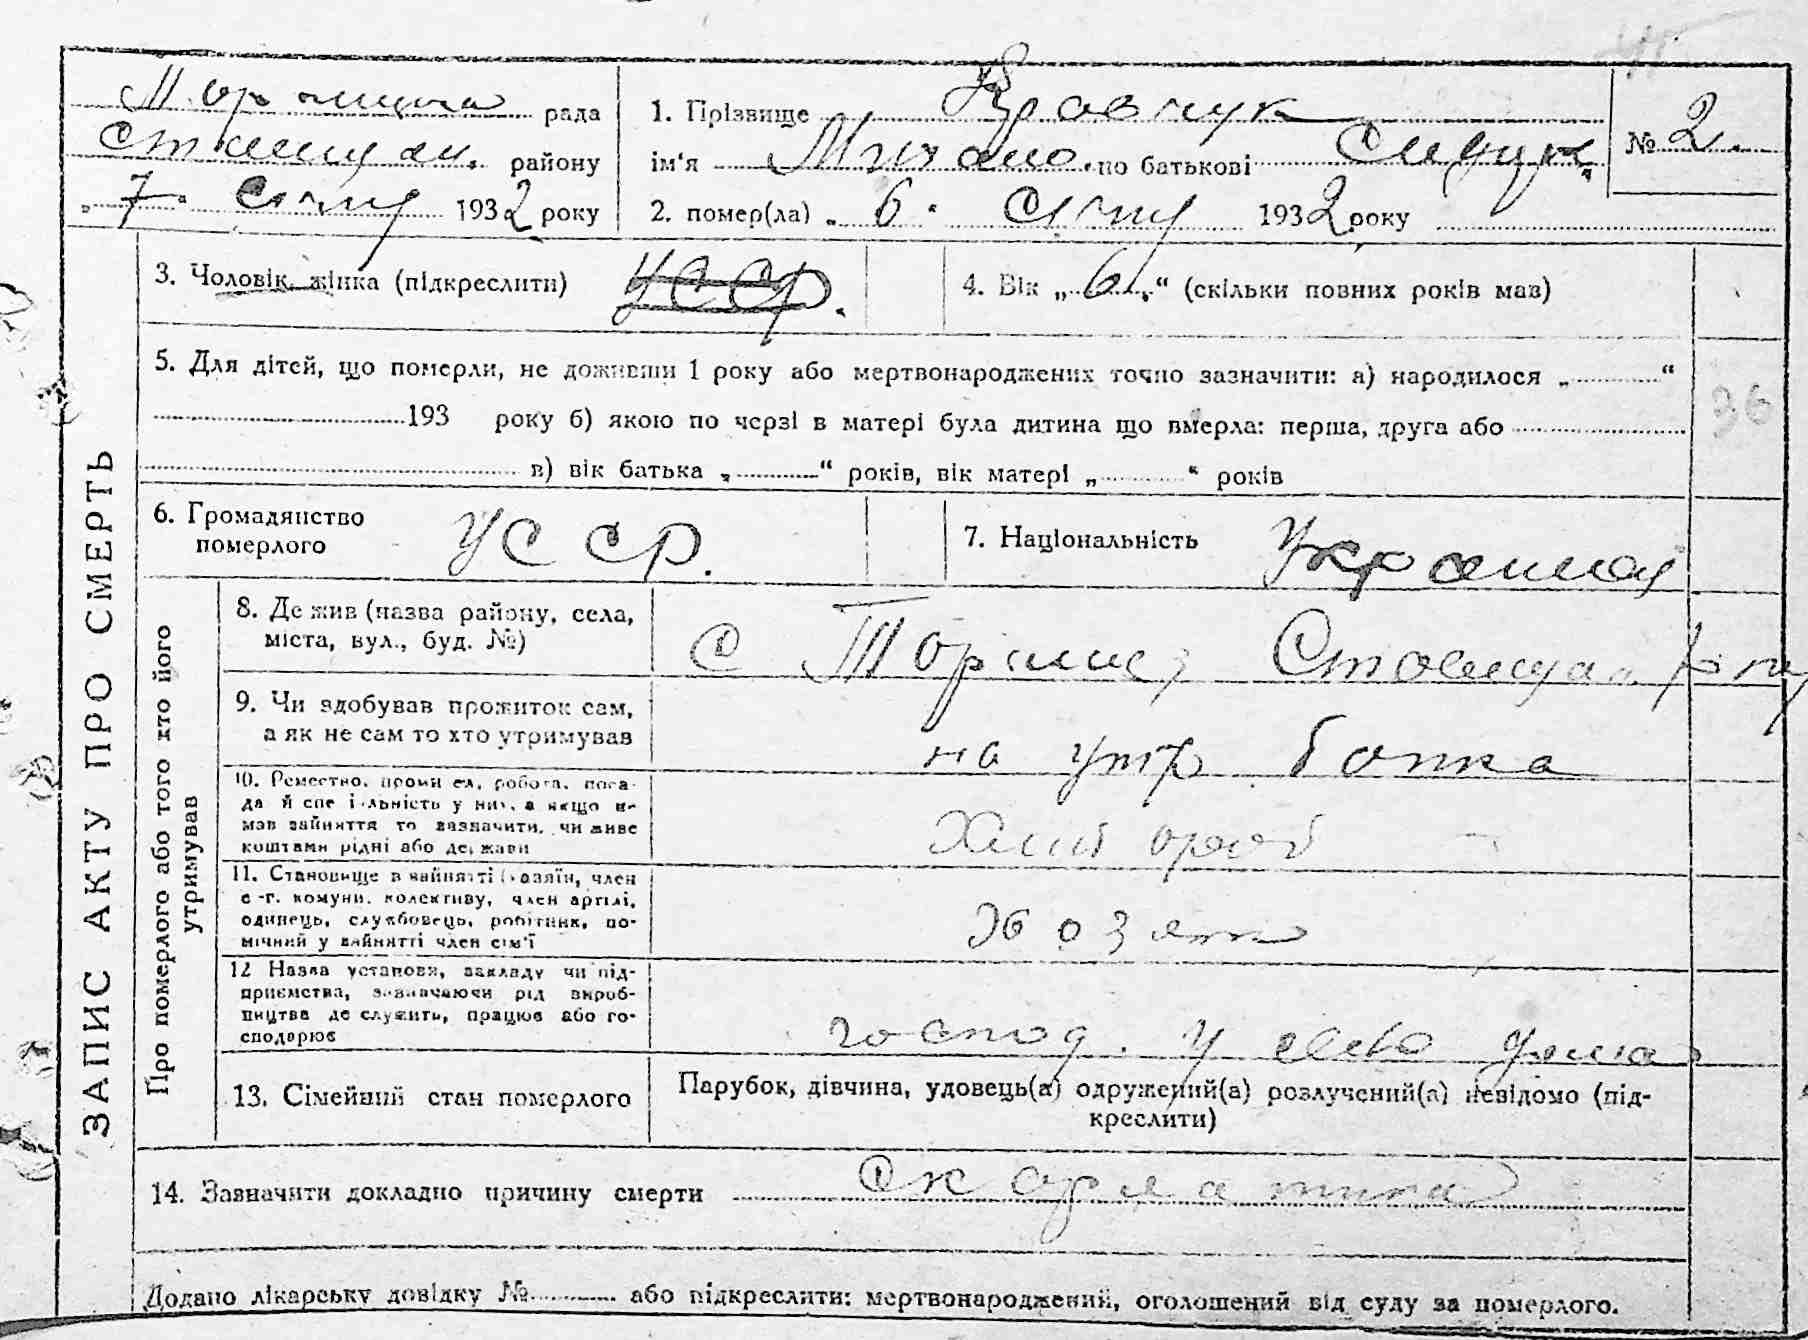 рада 1. Прізвище Кравчук № 2.
району ім'я Михайло по батькові
„7“ січня 1932 року 2. помер(ла) „6“ січня 1932 року
3. Чоловік, жінка (підкреслити) УССР. 4. Вік „6“ (скільки повних років мав)
5. Для дітей, що померли, не доживши 1 року або мертвонароджених точно зазначити: а) народилося „ “
193 року б) якою по черзі в матері була дитина що вмерла: перша, друга або
в) вік батька „ “ років, вік матері „ “ років
36
ЗАПИС АКТУ ПРО СМЕРТЬ
6. Громадянство
померлого УССР. 7. Національність
Про померлого або того хто його
утримував
8. Де жив (назва району, села,
міста, вул., буд. №) с
9. Чи здобував прожиток сам,
а як не сам то хто утримував на утр батька
10. Ремество, промисел, робота, поса-
да й спеціяльність у них, а якщо не
мав зайняття то зазначити, чи живе
коштами рідні або держави Хлібороб
11. Становище в зайнятті (хазяїн, член
с.-г. комуни, колективу, член артілі,
одинець, службовець, робітник, по-
мічний у зайнятті член сім'ї
12 Назва установи, закладу чи під-
приємства, зазначаючи рід вироб-
ництва де служить, працює або го-
сподарює господ. у
13. Сімейний стан померлого Парубок, дівчина, удовець(а) одружений(а) розлучений(а) невідомо (під-
креслити)
14. Зазначити докладно причину смерти Скарлатина
Додано лікарську довідку № або підкреслити: мертвонароджений, оголошений від суду за померлого.